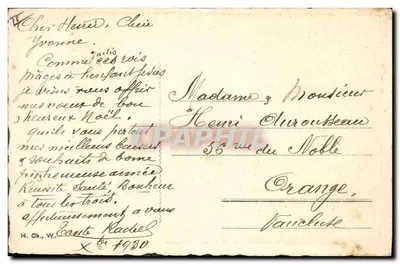 Cher Henri, Chère
Yvonne.
Comme jadis
ces rois
mages à l'enfant Jésus
je viens vous offrir
mes vœux de bon
heureux Noël.
Qu'ils vous portent
mes meilleurs baisers
& souhaits de bonne
Réussite Santé, Bonheur
à tous les trois.
affectueusement à vous
Tante Rachel
Xbre 1930
H. Ch., W.
Madame, Monsieur
Henri Ourousseau
56 rue du Noble
Orange,
Vaucluse
DELCAMPHIL